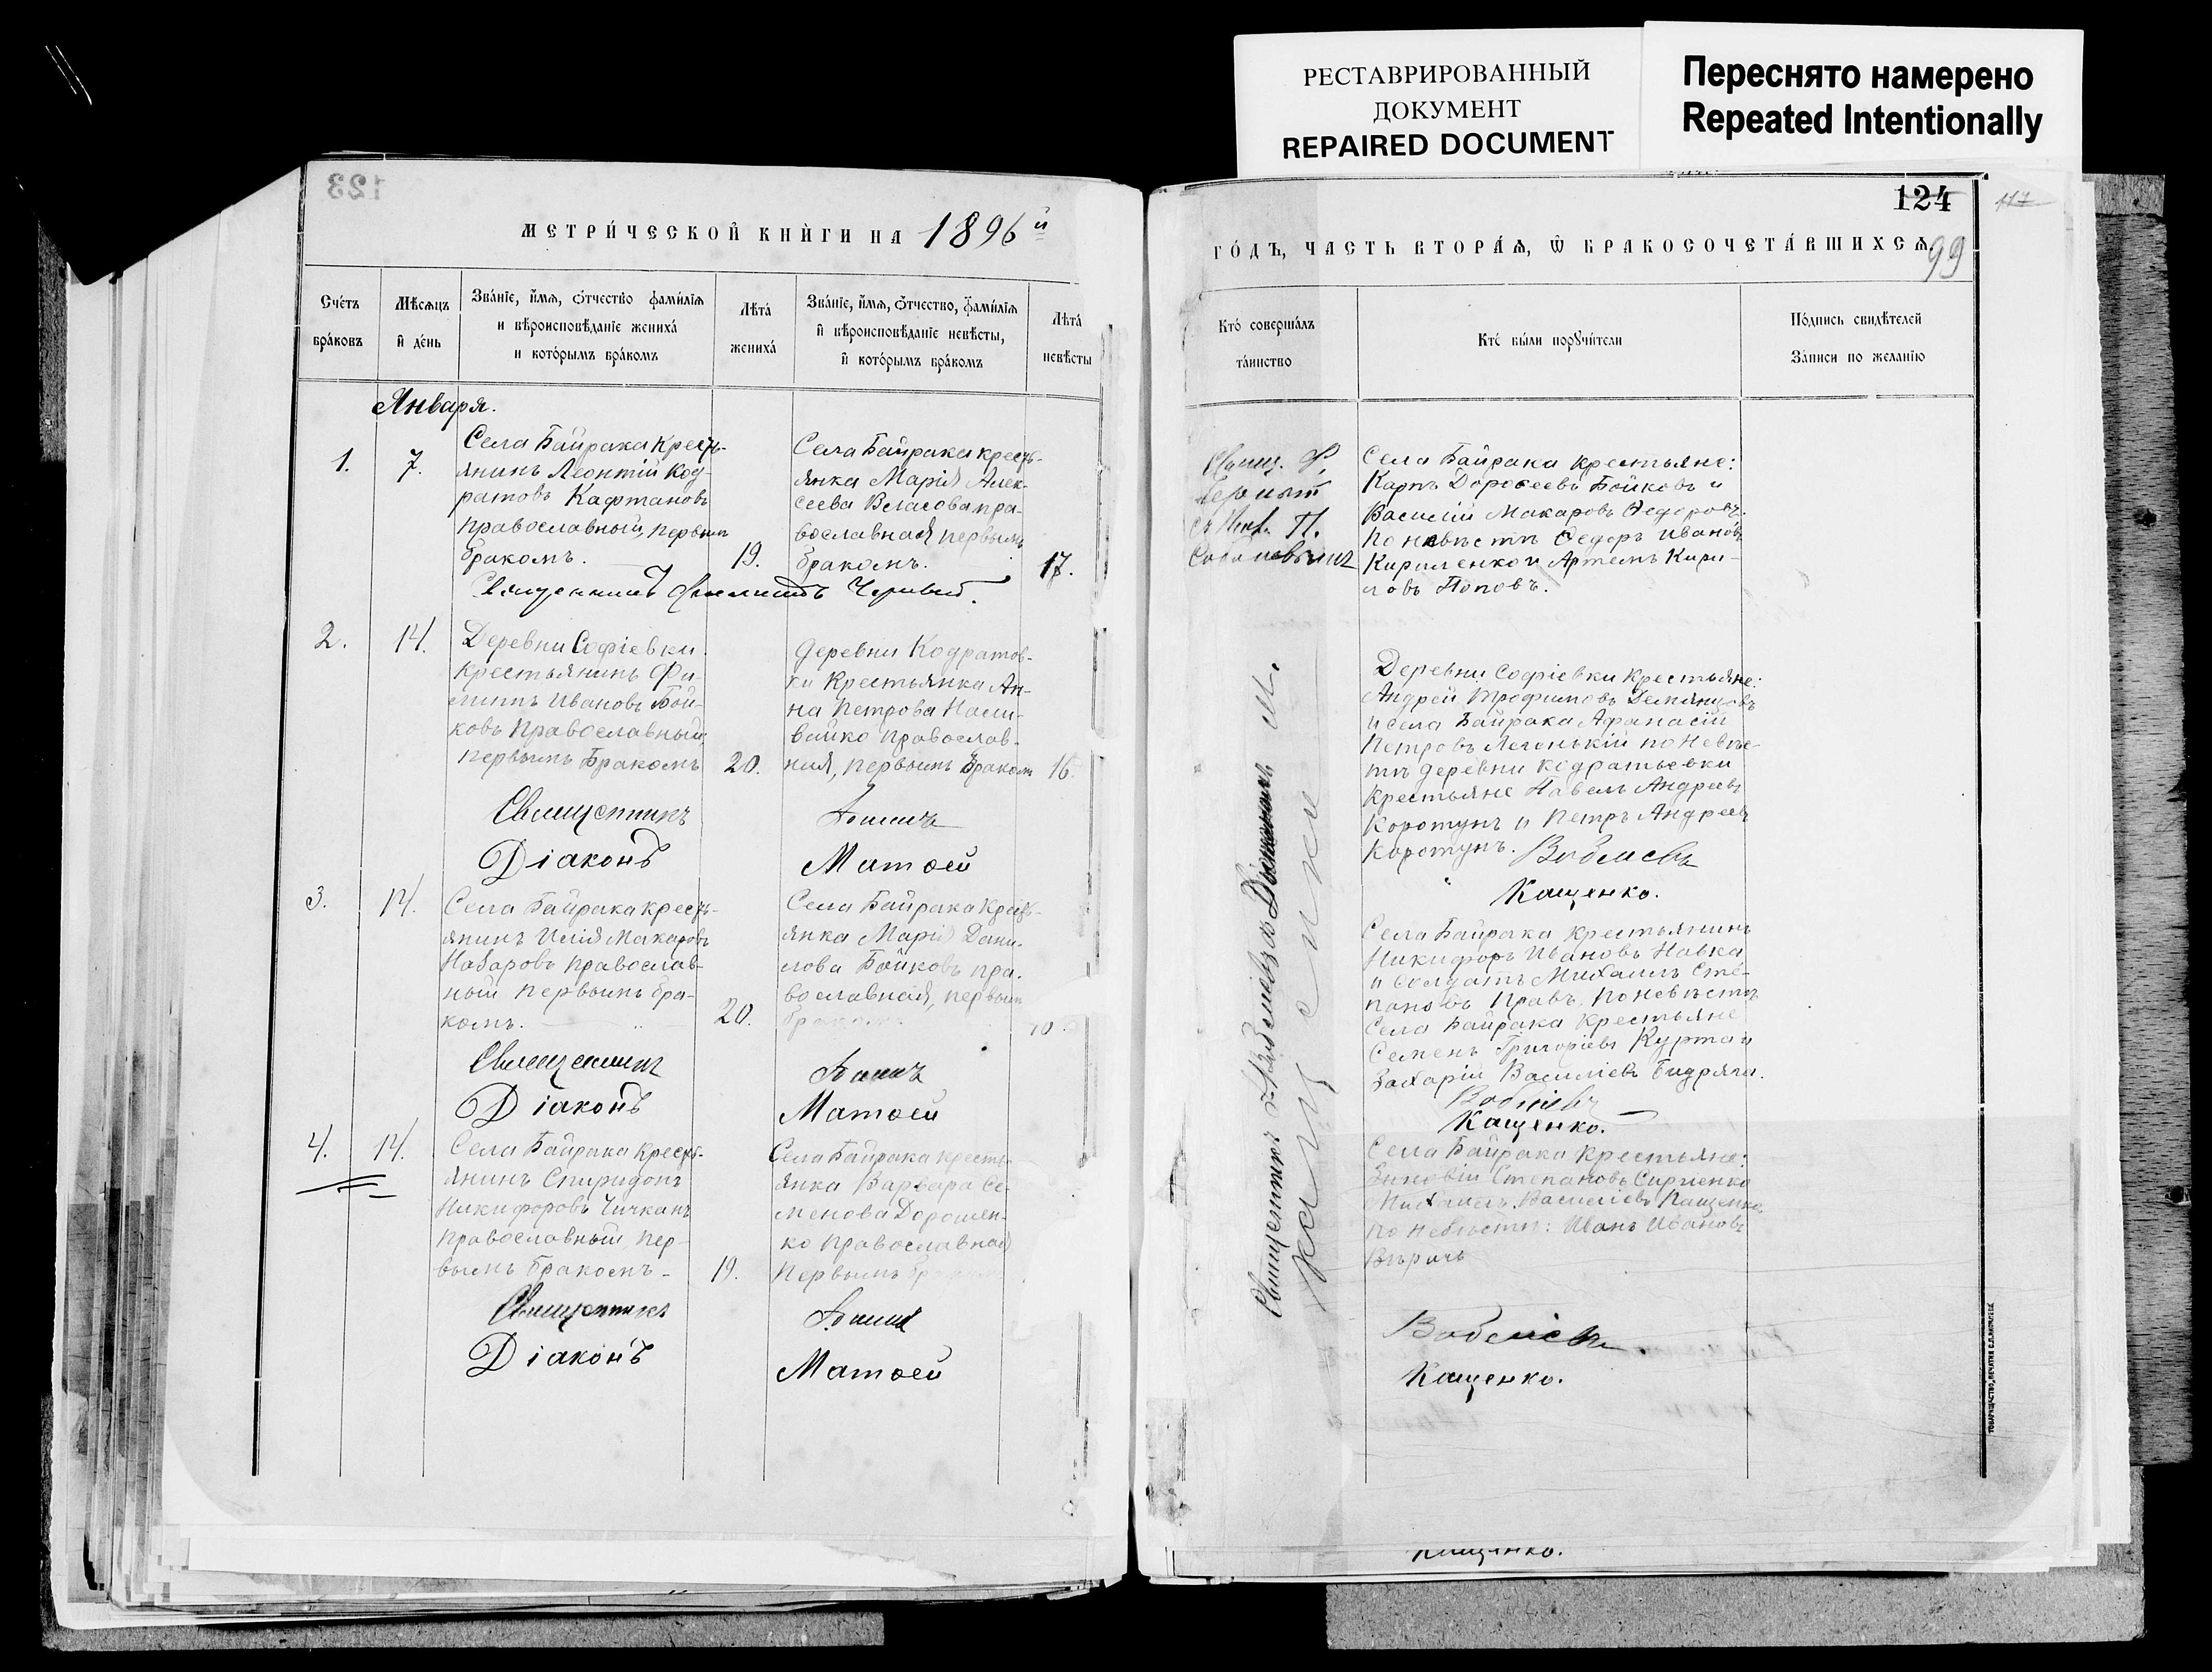 РЕСТАВРИРОВАННЫЙ
ДОКУМЕНТ
REPAIRED DOCUMENT
Переснято намерено
Repeated Intentionally
123
МЕТРИ́ЧЕСКОЙ КНИ́ГИ НА 1896й
Сче́тъ
бра́ковъ
Мѣ́сяцъ
и҆ де́нь
Зва́нїе, и҆́мя, ѻ҆́тчество фами́лїя
и вѣроисповѣ́данїе жениха́
и кото́рымъ бра́комъ
Лѣта́
жениха́
Зва́нїе, и҆́мя, ѻ҆́тчество, фами́лїя
и҆ вѣроисповѣ́данїе невѣ́сты,
и҆ кото́рымъ бра́комъ
Лѣта́
невѣ́сты
Января.
1.
7.
Села Байрака кресть-
янинъ Леонтій Код-
ратовъ Кафтановъ
православный, первым
бракомъ.
19.
Села Байрака кресть-
янка Марія Алек-
сеева Власова пра-
вославная первымъ
бракомъ.
17.
Священникъ Черный.
2.
14.
Деревни Софіевки
крестьянинъ Фи-
липъ Ивановъ Бой-
ковъ Православный,
первымъ Бракомъ
20.
деревни Кодратов-
ки Крестьянка Ан-
на Петрова Нали-
вайко православ-
ная, первымъ Браком
16.
Священникъ
Діаконъ
Матѳей
3.
14.
Села Байрака кресть-
янинъ Илія Макаровъ
Назаровъ православ-
ный первымъ бра-
комъ.
20.
Села Байрака Кресть-
янка Марія Дани-
лова Бойковъ пра-
вославная, первым
бракомъ
Священникъ
Діаконъ
Матѳей
4.
14.
Села Байрака кресть-
янинъ Спиридонъ
Никифоровъ Чичканъ
православный пер-
вымъ бракомъ-
19.
Села Байрака кресть-
янка Варвара Се-
менова Дорошен-
ко православная
Первымъ
Священникъ
Діаконъ
Матѳей
124
117
ГО́ДЪ, ЧА́СТЬ ВТОРА́Я, Ѡ҆ БРАКОСОЧЕТА́ВШИХСЯ
99
Кто́ соверша́лъ
та́инство
Кто́ бы́ли поручи́тели
По́дпись свидѣ́телей
За́писи по жела́нїю
Свящ. Ф.
Черный
П.
Села Байрака крестьяне:
Карпъ Дороѳеевъ Бойковъ и
Василій Макаровъ Ѳедоровъ.
По невѣстѣ Ѳедоръ Ивановъ
Кириленко и Артемъ Кири-
ловъ Поповъ.
Деревни Софіевки Крестьяне:
Андрей Трофимовъ Демянцовъ
и села Байрака Афанасій
Петровъ Легенькій по Невѣс-
тѣ деревни кодратьевки
Крестьяне Павелъ Андреевъ
Коротунъ и Петръ Андреевъ
Коротунъ.
Кащенко.
Села Байрака крестьянинъ
Никифоръ Ивановъ Навка
и Солдатъ Михаилъ Сте-
пановъ Правъ. По невѣстѣ
Села Байрака Крестьяне
Семенъ Григоріевъ Курта и
Захарій Василіевъ Бидряга.
Кащенко.
Села Байрака Крестьяне:
Зиновій Степановъ Сиренко
Михаилъ Василіевъ Пащенко
по невѣстѣ: Иванъ Ивановъ
Кащенко.
Священникъ
Кащенко.